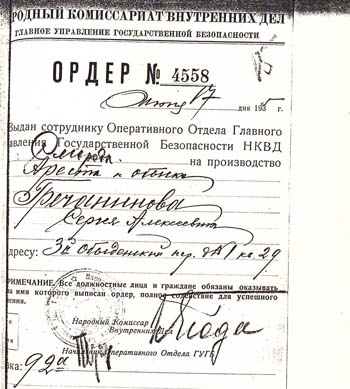 РОДНЫЙ КОМИССАРИАТ ВНУТРЕННИХ ДЕЛ
ГЛАВНОЕ УПРАВЛЕНИЕ ГОСУДАРСТВЕННОЙ БЕЗОПАСНОСТИ
ОРДЕР № 4558
17 дня 1935 г.
Выдан сотруднику Оперативного Отдела Главного
авления Государственной Безопасности НКВД
на производство
Ареста и обыска
Гречанинова
Сергея Алексеевича
дресу: 3й Обыденский пер. д №1 кв. 29
РИМЕЧАНИЕ: Все должностные лица и граждане обязаны оказывать
на имя которого выписан ордер, полное содействие для успешного
нения.
Народный Комиссар
Внутренних Дел
Начальник Оперативного Отдела ГУГБ
вка: 92а